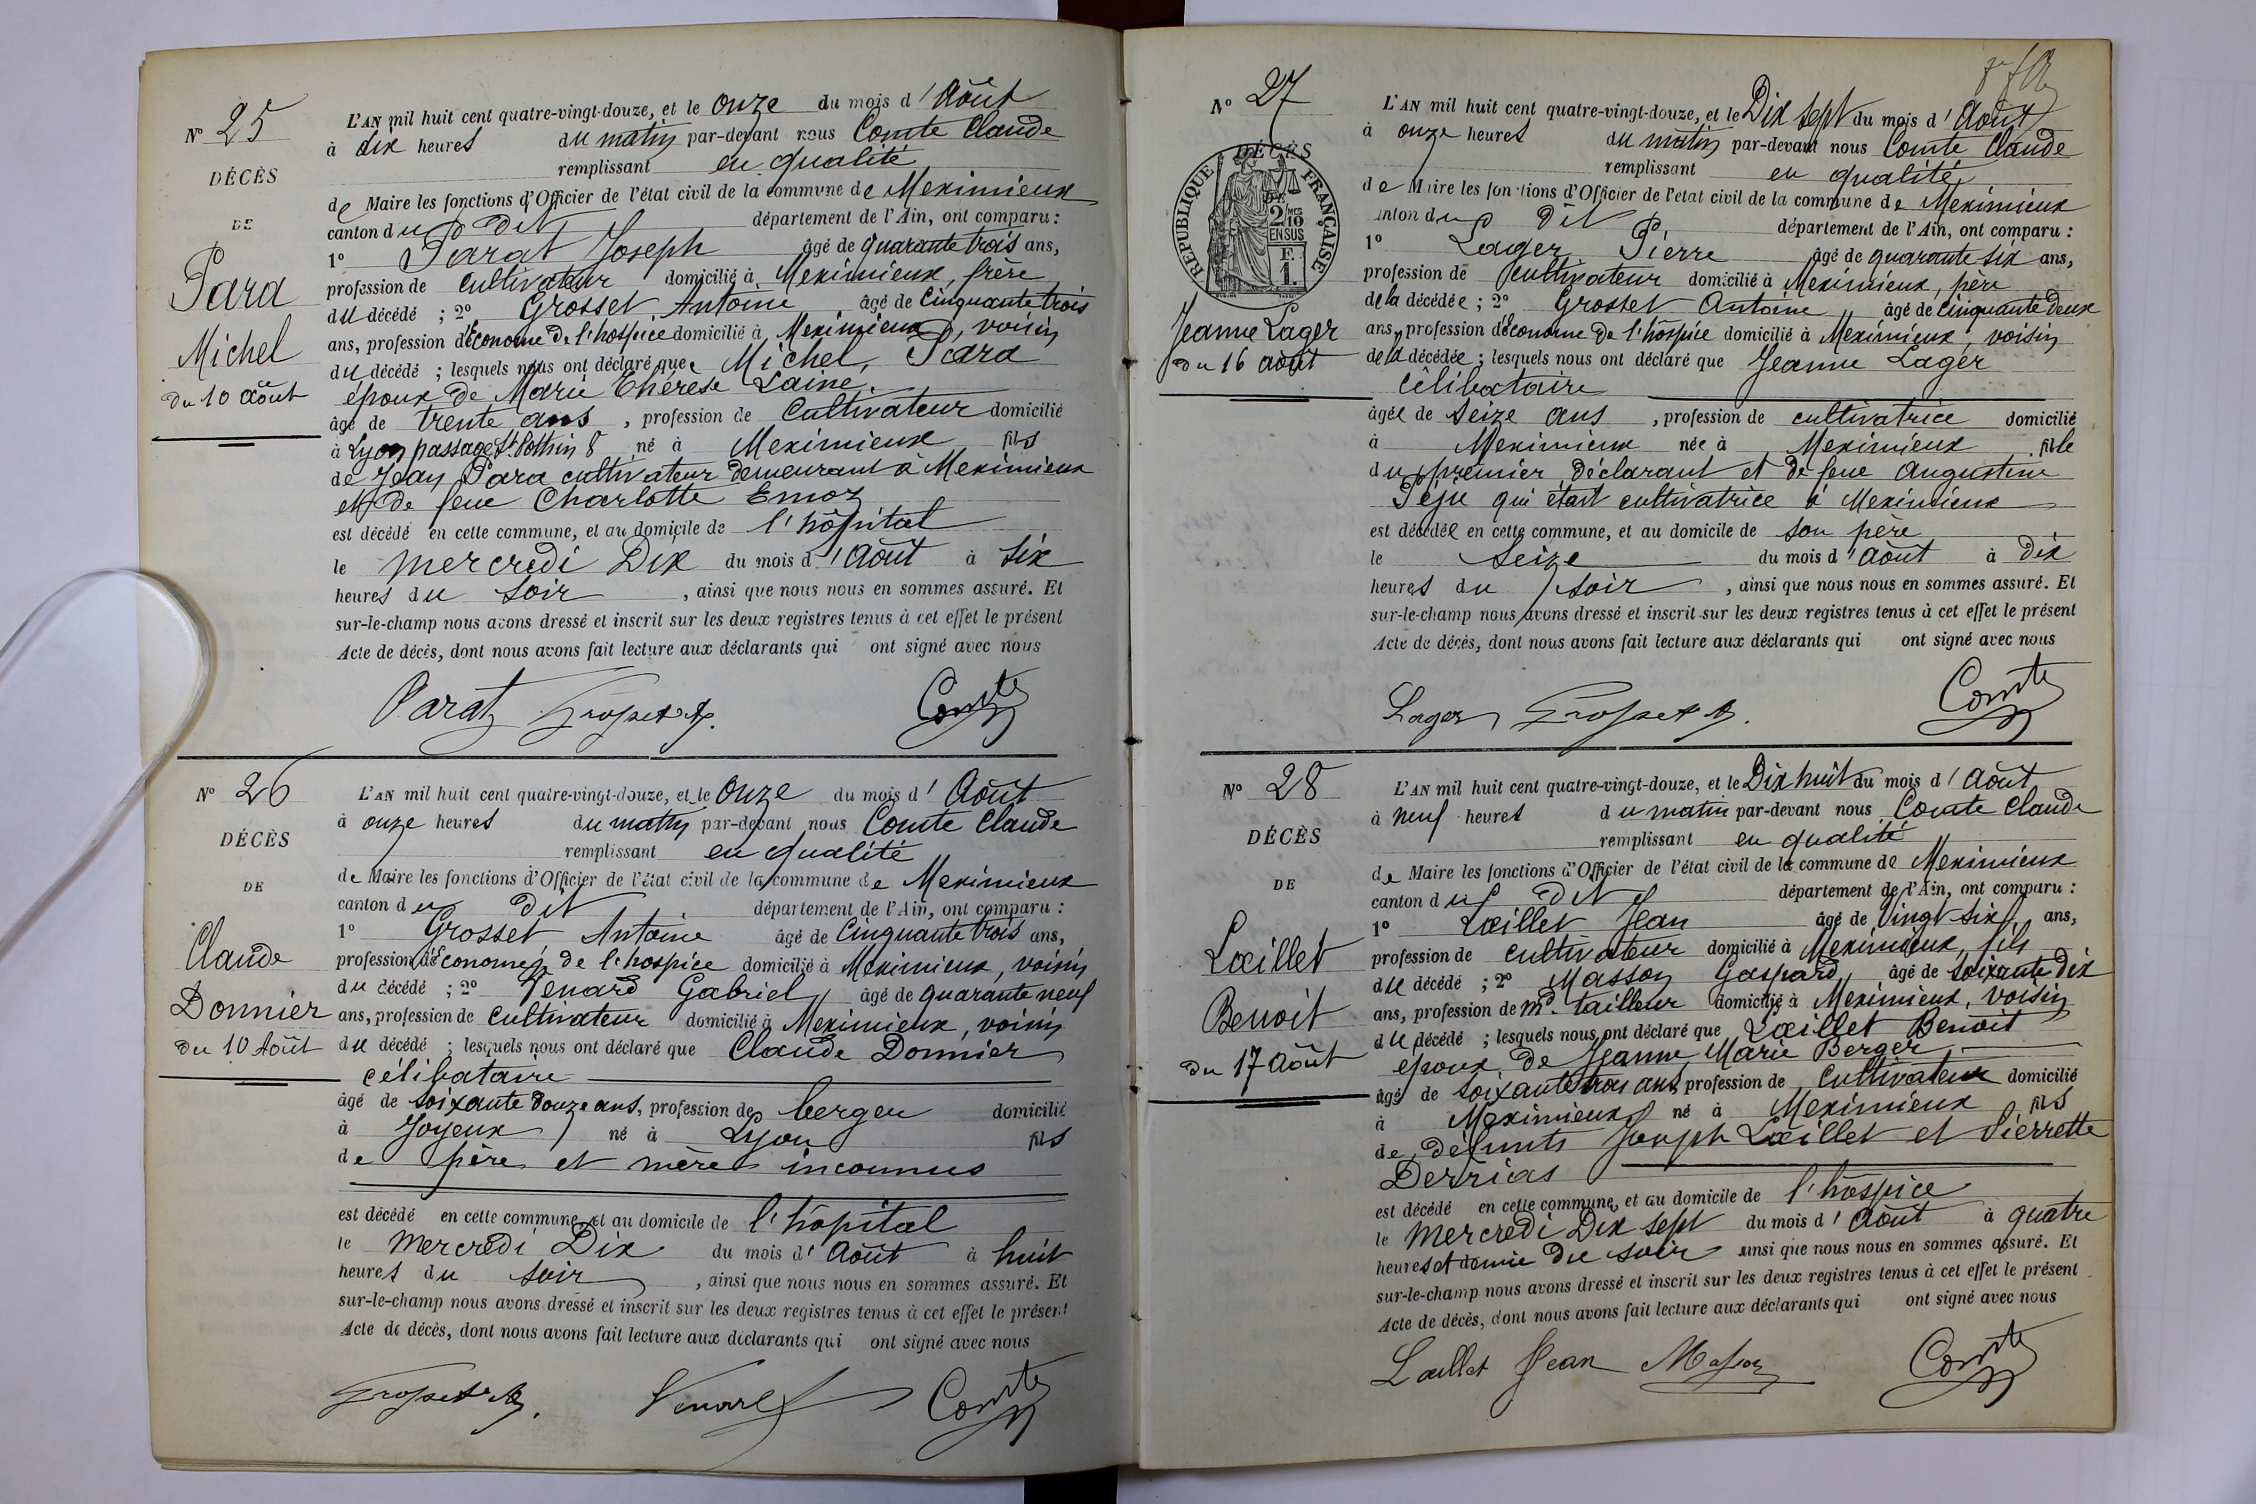 N° 25
DÉCÈS
DE
Para
Michel
du 10 août
L'AN mil huit cent quatre-vingt-douze, et le onze du mois d'Août
à dix heures du matin par-devant nous Comte Claude
remplissant en qualité
de Maire les fonctions d'Officier de l'état civil de la commune de Meximieux
canton du dit département de l'Ain, ont comparu :
1° Parat Joseph âgé de quarante trois ans,
profession de cultivateur domicilié à Meximieux, frère
du décédé ; 2° Grosset Antoine âgé de cinquante trois
ans, profession d'Econome de l'hospice domicilié à Meximieux, voisin
du décédé ; lesquels nous ont déclaré que Michel, Para
époux de Marie Thérèse Laine,
âgé de trente ans, profession de cultivateur domicilié
à Lyon passage St. Pothin 8 né à Meximieux fils
de Jean Para cultivateur demeurant à Meximieux
et de feue Charlotte Emoz
est décédé en cette commune, et au domicile de l'hôpital
le mercredi Dix du mois d'Août à six
heures du soir, ainsi que nous nous en sommes assuré. Et
sur-le-champ nous avons dressé et inscrit sur les deux registres tenus à cet effet le présent
Acte de décès, dont nous avons fait lecture aux déclarants qui ont signé avec nous
Parat Grosset A. Comte
N° 26
DÉCÈS
DE
Claude
Donnier
du 10 Août
L'AN mil huit cent quatre-vingt-douze, et le onze du mois d'Août
à onze heures du matin par-devant nous Comte Claude
remplissant en qualité
de Maire les fonctions d'Officier de l'état civil de la commune de Meximieux
canton du dit département de l'Ain, ont comparu :
1° Grosset Antoine âgé de cinquante trois ans,
profession d'économe de l'hospice domicilié à Meximieux, voisin
du décédé ; 2° Venard Gabriel âgé de quarante neuf
ans, profession de cultivateur domicilié à Meximieux, voisin
du décédé ; lesquels nous ont déclaré que Claude Donnier
célibataire
âgé de soixante douze ans, profession de berger domicilié
à Joyeux né à Lyon fils
de père et mère inconnus
est décédé en cette commune, et au domicile de l'hôpital
le mercredi Dix du mois d'Août à huit
heures du soir, ainsi que nous nous en sommes assuré. Et
sur-le-champ nous avons dressé et inscrit sur les deux registres tenus à cet effet le présent
Acte de décès, dont nous avons fait lecture aux déclarants qui ont signé avec nous
Grosset A. Venard Comte
N° 27
DÉCÈS
DE
RÉPUBLIQUE FRANÇAISE
2/10 MES
EN SUS
F.
1.
Jeanne Lager
du 16 août
L'AN mil huit cent quatre-vingt-douze, et le Dix sept du mois d'Août
à onze heures du matin par-devant nous Comte Claude
remplissant en qualité
de Maire les fonctions d'Officier de l'état civil de la commune de Meximieux
canton du dit département de l'Ain, ont comparu :
1° Lager Pierre âgé de quarante six ans,
profession de cultivateur domicilié à Meximieux, père
de la décédée ; 2° Grosset Antoine âgé de cinquante deux
ans, profession d'économe de l'hospice domicilié à Meximieux, voisin
de la décédée ; lesquels nous ont déclaré que Jeanne Lager
célibataire
âgée de seize ans, profession de cultivatrice domicilié
à Meximieux née à Meximieux fille
du premier déclarant et de feue Augustine
Péju qui était cultivatrice à Meximieux
est décédée en cette commune, et au domicile de son père
le seize du mois d'Août à dix
heures du soir, ainsi que nous nous en sommes assuré. Et
sur-le-champ nous avons dressé et inscrit sur les deux registres tenus à cet effet le présent
Acte de décès, dont nous avons fait lecture aux déclarants qui ont signé avec nous
Lager Grosset A. Comte
N° 28
DÉCÈS
DE
Lœillet
Benoit
du 17 Août
L'AN mil huit cent quatre-vingt-douze, et le Dix huit du mois d'Août
à neuf heures du matin par-devant nous Comte Claude
remplissant en qualité
de Maire les fonctions d'Officier de l'état civil de la commune de Meximieux
canton du dit département de l'Ain, ont comparu :
1° Lœillet Jean âgé de vingt six ans,
profession de cultivateur domicilié à Meximieux, fils
du décédé ; 2° Masson Gaspard, âgé de soixante dix
ans, profession de md. tailleur domicilié à Meximieux, voisin
du décédé ; lesquels nous ont déclaré que Lœillet Benoit
époux de Jeanne Marie Berger
âgé de soixante trois ans, profession de cultivateur domicilié
à Meximieux né à Meximieux fils
de défunts Joseph Lœillet et Pierrette
Derrias
est décédé en cette commune, et au domicile de l'hospice
le mercredi Dix sept du mois d'Août à quatre
heures et demie du soir ainsi que nous nous en sommes assuré. Et
sur-le-champ nous avons dressé et inscrit sur les deux registres tenus à cet effet le présent
Acte de décès, dont nous avons fait lecture aux déclarants qui ont signé avec nous
Lœillet Jean Masson Comte